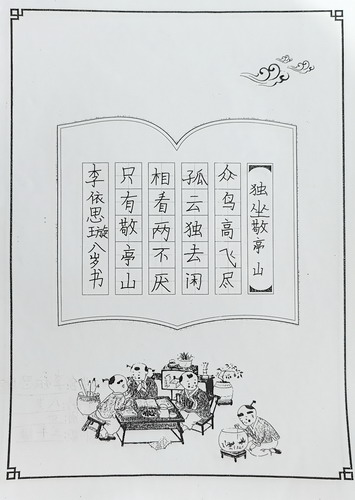 独坐敬亭山
众鸟高飞尽
孤云独去闲
相看两不厌
只有敬亭山
李依思璇八岁书